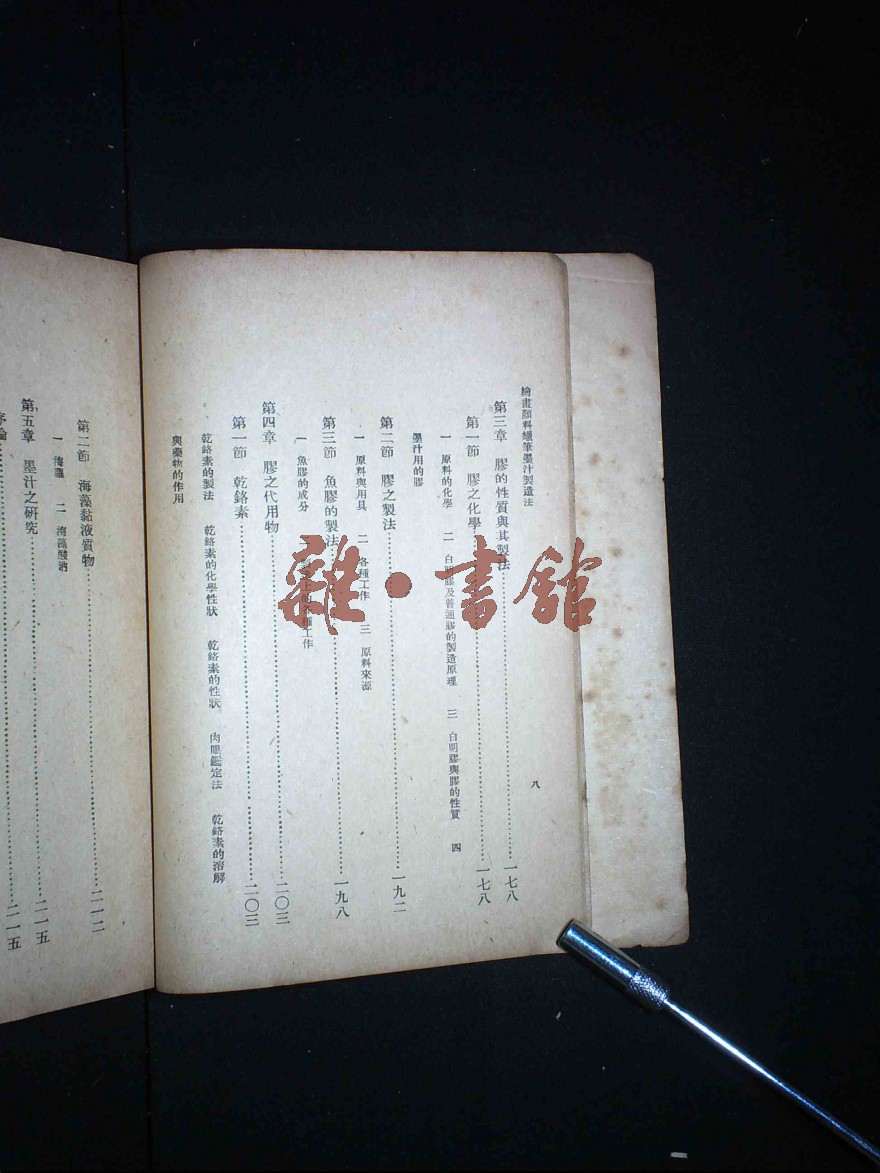 繪畫顏料蠟筆墨汁製造法
八
第三章 膠的性質與其製法……一七八
第一節 膠之化學……一七八
一 原料的化學 二 白明膠及普通膠的製造原理 三 白明膠與膠的性質 四
墨汁用的膠
第二節 膠之製法……一九二
一 原料與用具 二 各種工作 三 原料來源
第三節 魚膠的製法……一九八
一 魚膠的成分 工作
第四章 膠之代用物……二〇三
第一節 乾鉻素……二〇三
乾鉻素的製法 乾鉻素的化學性狀 乾鉻素的性狀 肉眼鑑定法 乾鉻素的溶解
與藥物的作用
第二節 海藻黏液質物……二一二
一 海蘿 二 海藻酸鈉
第五章 墨汁之研究……二一五
序論……二一五
雜·書館